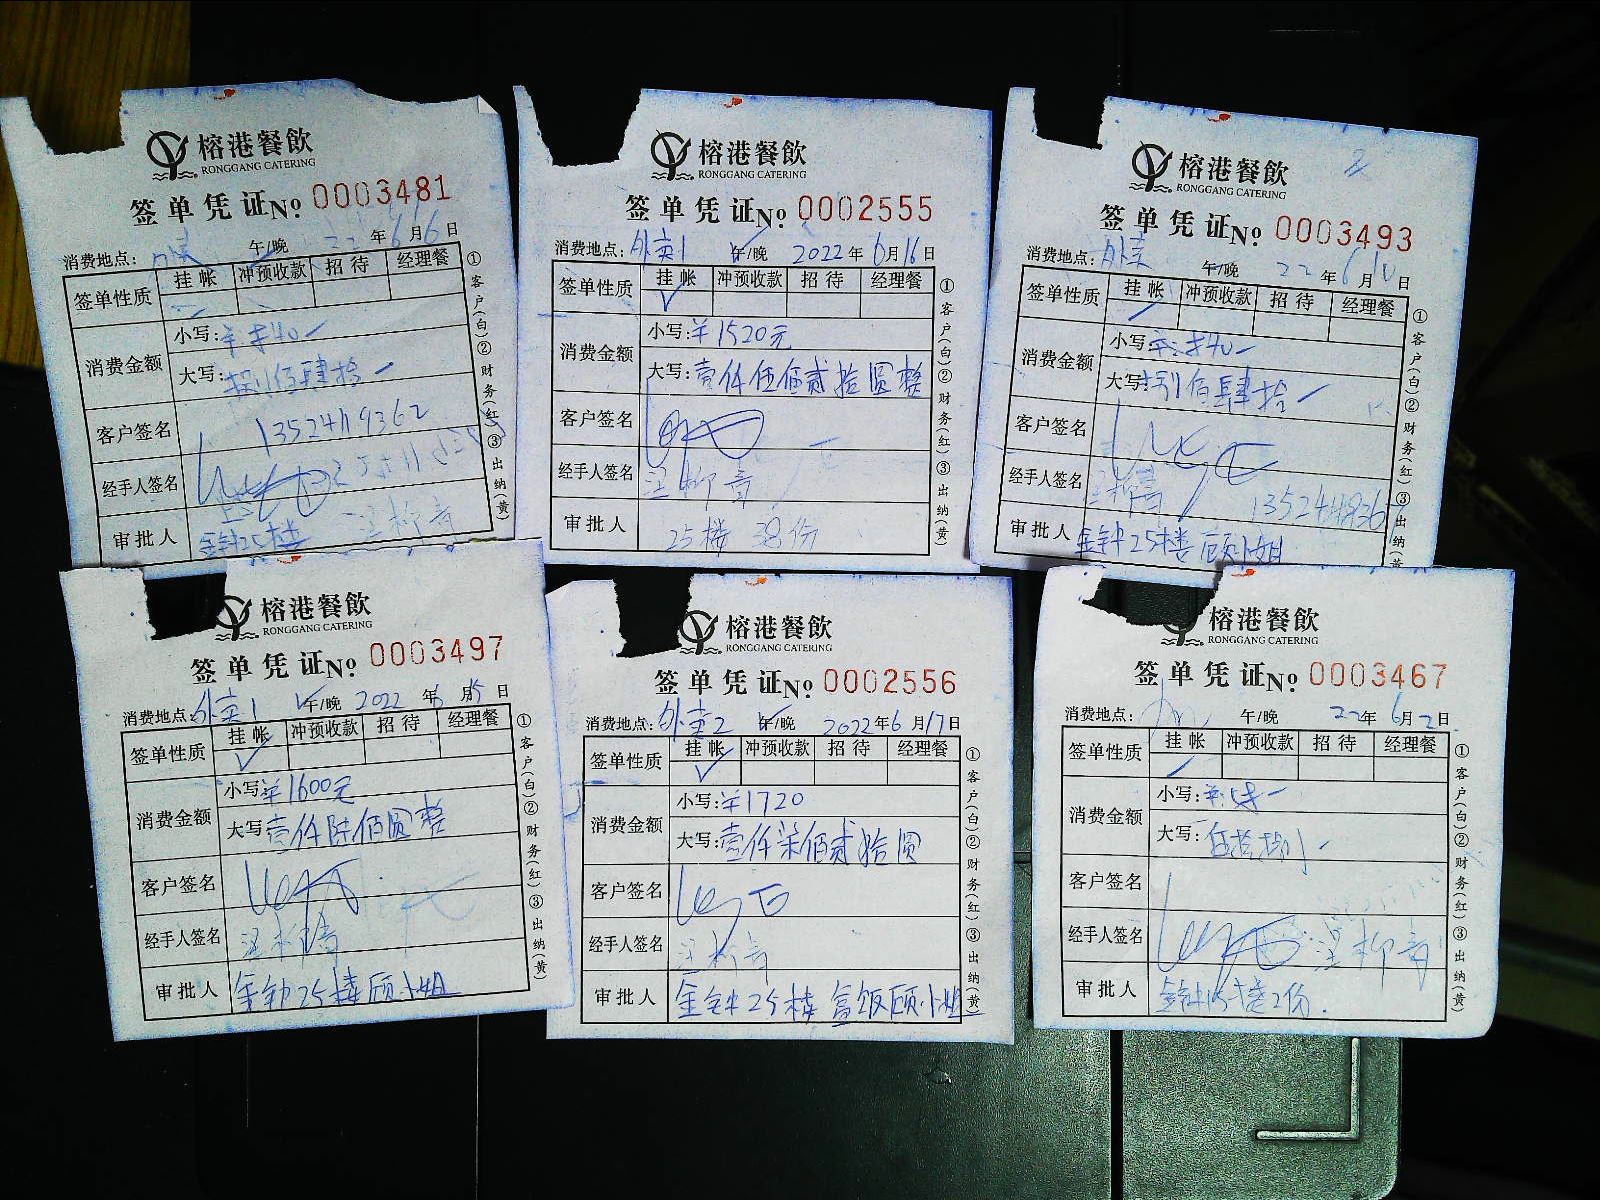 榕港餐飲
RONGGANG CATERING
签单凭证№ 0003481
消费地点: 午/晚 22 年 6 月 6 日
签单性质 挂帐 冲预收款 招待 经理餐
消费金额 小写:
大写: 佰肆拾
客户签名 13524119362
经手人签名
审批人 金钟25楼 汪柳青
①客户(白)②财务(红)③出纳(黄)
榕港餐飲
RONGGANG CATERING
签单凭证№ 0002555
消费地点: 外卖1 午/晚 2022 年 6 月 16 日
签单性质 挂帐 冲预收款 招待 经理餐
消费金额 小写:¥1520元
大写:壹仟伍佰贰拾圆整
客户签名
经手人签名 汪柳青
审批人 25楼 38份
①客户(白)②财务(红)③出纳(黄)
2
榕港餐飲
RONGGANG CATERING
签单凭证№ 0003493
消费地点: 外卖 午/晚 22 年 6 月 10 日
签单性质 挂帐 冲预收款 招待 经理餐
消费金额 小写:
大写: 佰肆拾
客户签名
经手人签名 汪柳青
审批人 金钟25楼 顾小姐
①客户(白)②财务(红)③出纳(黄)
榕港餐飲
RONGGANG CATERING
签单凭证№ 0003497
消费地点: 外卖1 午/晚 2022 年 6 月 15 日
签单性质 挂帐 冲预收款 招待 经理餐
消费金额 小写:¥1600元
大写:壹仟陆佰圆整
客户签名
经手人签名 汪柳青
审批人 金钟25楼顾小姐
①客户(白)②财务(红)③出纳(黄)
榕港餐飲
RONGGANG CATERING
签单凭证№ 0002556
消费地点: 外卖2 午/晚 2022 年 6 月 17 日
签单性质 挂帐 冲预收款 招待 经理餐
消费金额 小写:¥1720
大写:壹仟柒佰贰拾圆
客户签名
经手人签名 汪柳青
审批人 金钟25楼 盒饭顾小姐
①客户(白)②财务(红)③出纳(黄)
榕港餐飲
RONGGANG CATERING
签单凭证№ 0003467
消费地点: 午/晚 22 年 6 月 2 日
签单性质 挂帐 冲预收款 招待 经理餐
消费金额 小写:
大写:
客户签名
经手人签名 汪柳青
审批人
①客户(白)②财务(红)③出纳(黄)